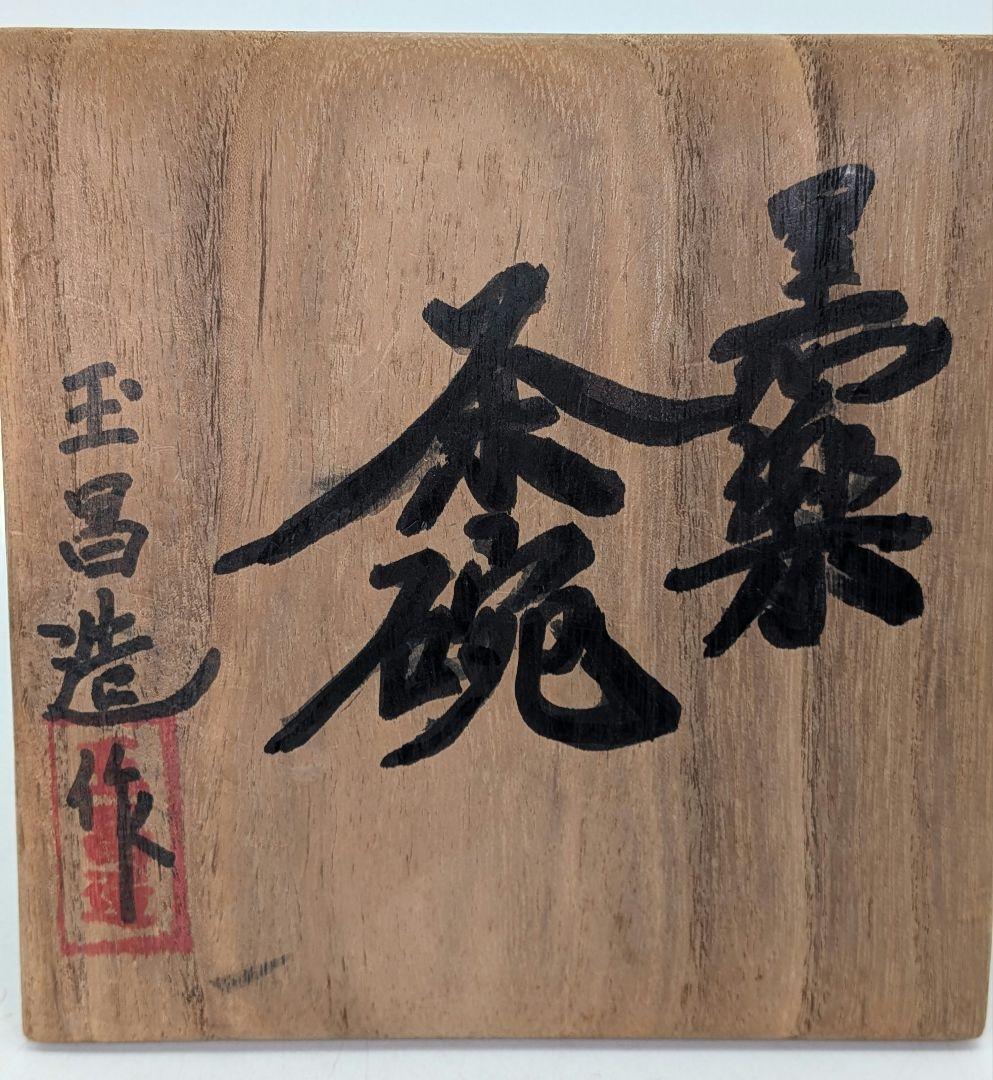 黒楽
茶碗
玉昌造作